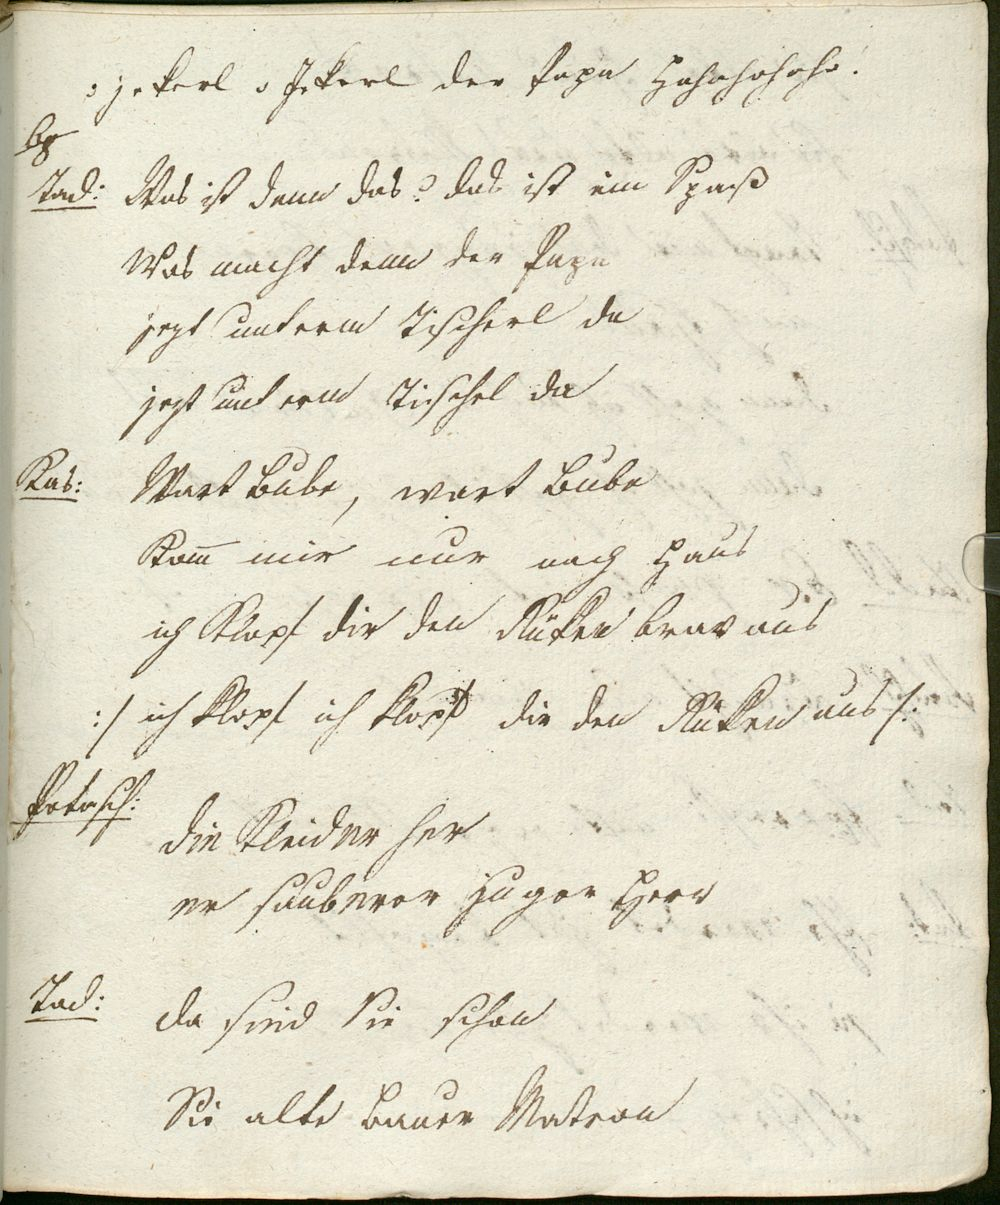 o jekerl o Jekerl der Papa Hahahahaha!
Tad: Was ist denn das? das ist ein Spaß
Was macht denn der Papa
jezt unterm Tischerl da
jezt unterm Tischel da
Kas: Wart Bube, wart Bube
Kom̄ mir nur nach Haus
ich Klopf dir den Rüken brav aus
:/ ich klopf ich klopf dir den Rüken aus /:
Potasch:
die Kleider her
er sauberer Herr
Tad: da sind Sie schon
Sie alte Bauer Matron